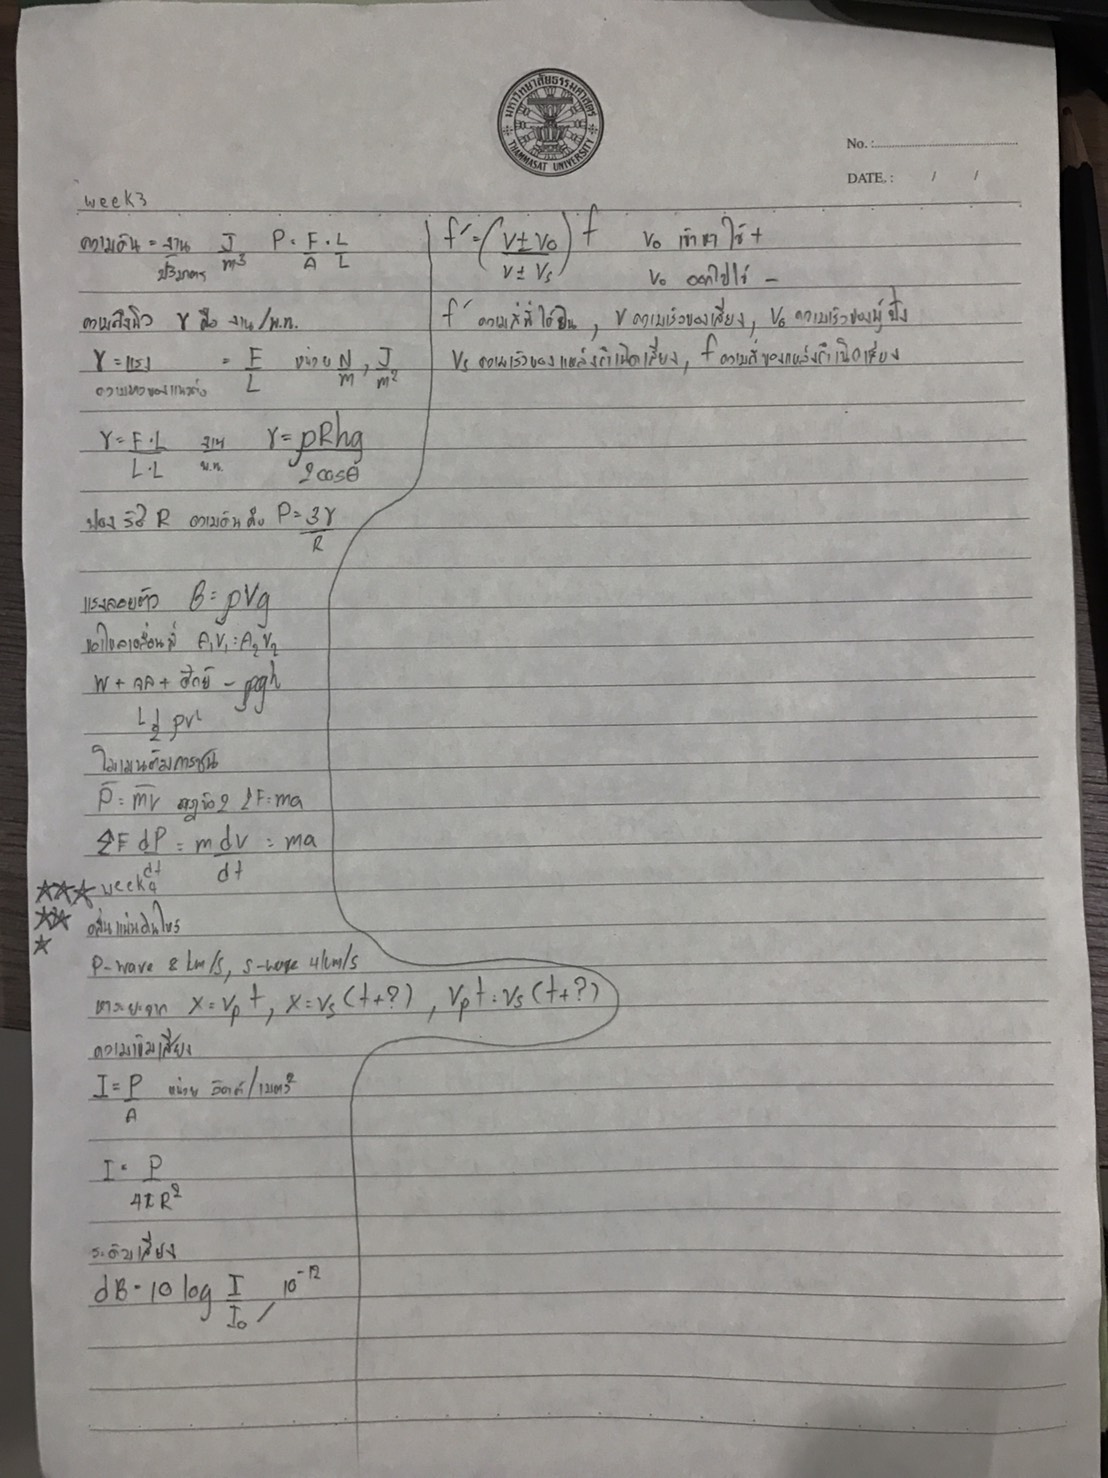 มหาวิทยาลัยธรรมศาสตร์
THAMMASAT UNIVERSITY
No. :
DATE. : / /
week3
ความดัน = งาน/ปริมาตร J/m³ P = F/A · L/L
ความตึงผิว γ คือ งาน/พ.ท.
γ = แรง/ความยาวของ = F/L หน่วย N/m, J/m²
γ = F·L/L·L งาน/พ.ท. γ = ρRhg/2cosθ
ฟอง รัศมี R ความดันคือ P = 3γ/R
แรงลอยตัว B = ρVg
ของไหลเคลื่อนที่ A₁V₁ = A₂V₂
W + จล + ศักย์ – ρgh
½ρv²
โมเมนตัมการชน
P = mv กฎข้อ 2 ΣF = ma
ΣF dP/dt = m dv/dt = ma
week4
คลื่นแผ่นดินไหว
P-wave 8 km/s, S-wave 4 km/s
หาระยะจาก x = vₚt, x = vₛ(t+?), vₚt = vₛ(t+?)
ความเข้มเสียง
I = P/A หน่วย วัตต์/เมตร²
I = P/4πR²
ระดับเสียง
dB = 10 log I/I₀ 10⁻¹²
f' = (v ± v₀/v ± vₛ) f v₀ เข้าหา ใช้ +
v₀ ออกไปใช้ –
f' ความถี่ที่ได้ยิน, v ความเร็วของเสียง, v₀ ความเร็วของผู้ฟัง
vₛ ความเร็วของแหล่งกำเนิดเสียง, f ความถี่ของแหล่งกำเนิดเสียง